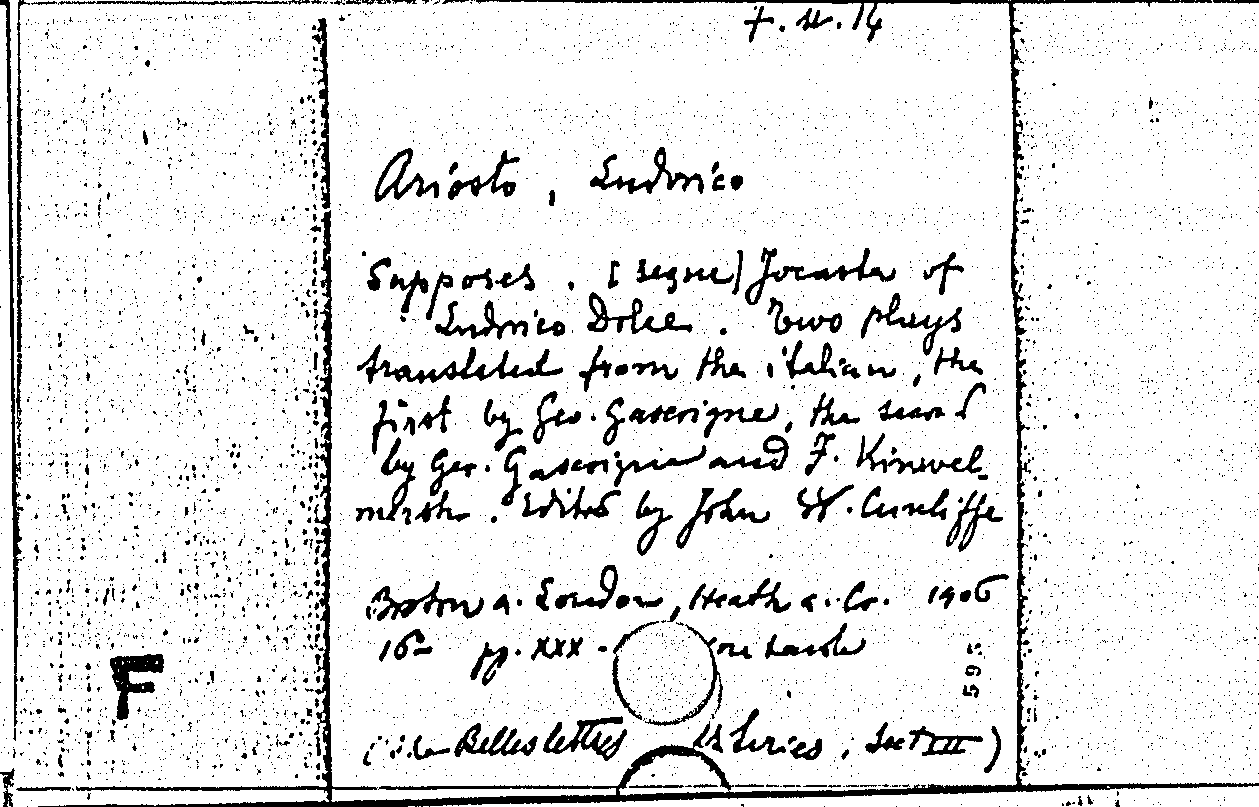 Ariosto, Ludovico
Supposes. [segue] Jocasta of
Ludovico Dolce. Two plays
translated from the italian, the
first by Geo. Gascoigne, the second
by Geo. Gascoigne and F. Kinwel-
mersh. Edited by John W. Cunliffe
Boston a. London, Heath a. Co. 1906
16° pp. XXX - con tavole
595
Belles lettres Series, Sect III)
F